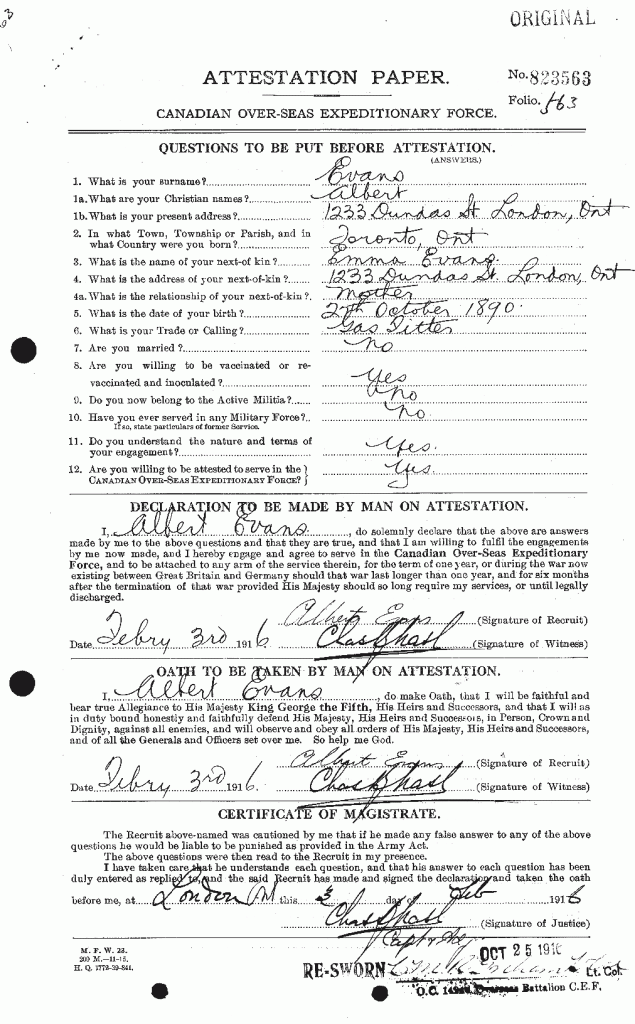 ORIGINAL
ATTESTATION PAPER.
No. 823563
Folio. 563
CANADIAN OVER-SEAS EXPEDITIONARY FORCE.
QUESTIONS TO BE PUT BEFORE ATTESTATION.
(ANSWERS.)
1. What is your surname? Evans
1a. What are your Christian names? Albert
1b. What is your present address? 1233 Dundas St. London, Ont
2. In what Town, Township or Parish, and in
what Country were you born? Toronto, Ont
3. What is the name of your next-of kin? Emma Evans.
4. What is the address of your next-of-kin? 1233 Dundas St. London, Ont
4a. What is the relationship of your next-of-kin? Mother
5. What is the date of your birth? 27th October 1890.
6. What is your Trade or Calling? Gas Fitter
7. Are you married? No
8. Are you willing to be vaccinated or re-
vaccinated and inoculated? Yes
9. Do you now belong to the Active Militia? No
10. Have you ever served in any Military Force? No.
If so, state particulars of former Service.
11. Do you understand the nature and terms of
your engagement? Yes.
12. Are you willing to be attested to serve in the }
CANADIAN OVER-SEAS EXPEDITIONARY FORCE? } Yes.
DECLARATION TO BE MADE BY MAN ON ATTESTATION.
I, Albert Evans, do solemnly declare that the above are answers
made by me to the above questions and that they are true, and that I am willing to fulfil the engagements
by me now made, and I hereby engage and agree to serve in the Canadian Over-Seas Expeditionary
Force, and to be attached to any arm of the service therein, for the term of one year, or during the war now
existing between Great Britain and Germany should that war last longer than one year, and for six months
after the termination of that war provided His Majesty should so long require my services, or until legally
discharged.
Albert Evans (Signature of Recruit)
Date Febry 3rd 1916 (Signature of Witness)
OATH TO BE TAKEN BY MAN ON ATTESTATION.
I, Albert Evans, do make Oath, that I will be faithful and
bear true Allegiance to His Majesty King George the Fifth, His Heirs and Successors, and that I will as
in duty bound honestly and faithfully defend His Majesty, His Heirs and Successors, in Person, Crown and
Dignity, against all enemies, and will observe and obey all orders of His Majesty, His Heirs and Successors,
and of all the Generals and Officers set over me. So help me God.
Albert Evans (Signature of Recruit)
Date Febry 3rd 1916. (Signature of Witness)
CERTIFICATE OF MAGISTRATE.
The Recruit above-named was cautioned by me that if he made any false answer to any of the above
questions he would be liable to be punished as provided in the Army Act.
The above questions were then read to the Recruit in my presence.
I have taken care that he understands each question, and that his answer to each question has been
duly entered as replied to, and the said Recruit has made and signed the declaration and taken the oath
before me, at London Ont this 3 day of Feb 1916
(Signature of Justice)
M. F. W. 23.
200 M.—11-15.
H. Q. 1772-39-841.
OCT 25 1916
RE-SWORN Lt. Col.
O.C. Overseas Battalion C.E.F.